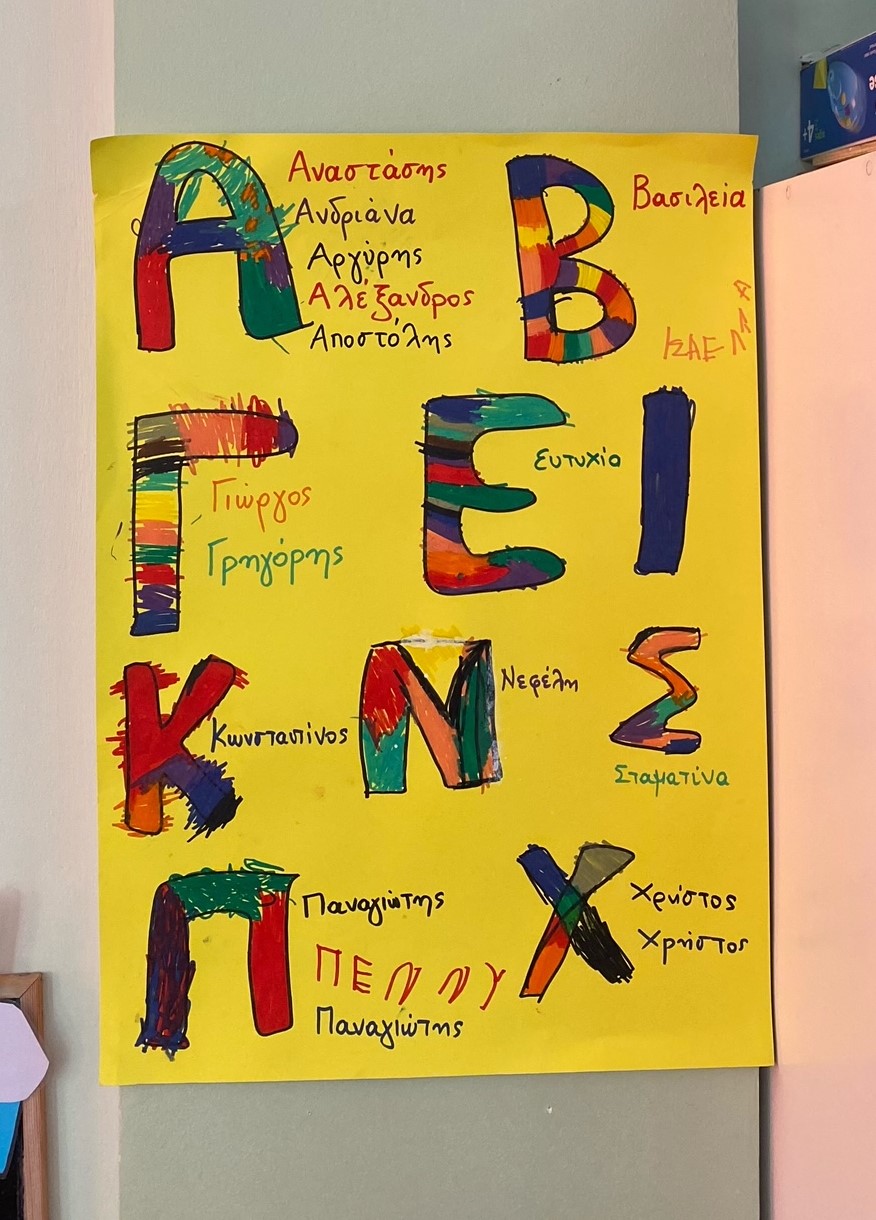 Α
Αναστάσης
Ανδριάνα
Αργύρης
Αλέξανδρος
Αποστόλης
Β
Βασιλεία
ΙΣΑΕΛΛΑ
Γ
Γιώργος
Γρηγόρης
Ε
Ευτυχία
Ι
Κ
Κωνσταντίνος
Ν
Νεφέλη
Σ
Σταματίνα
Π
Παναγιώτης
ΠΕΝΝΥ
Παναγιώτης
Χ
Χρήστος
Χρήστος
4+